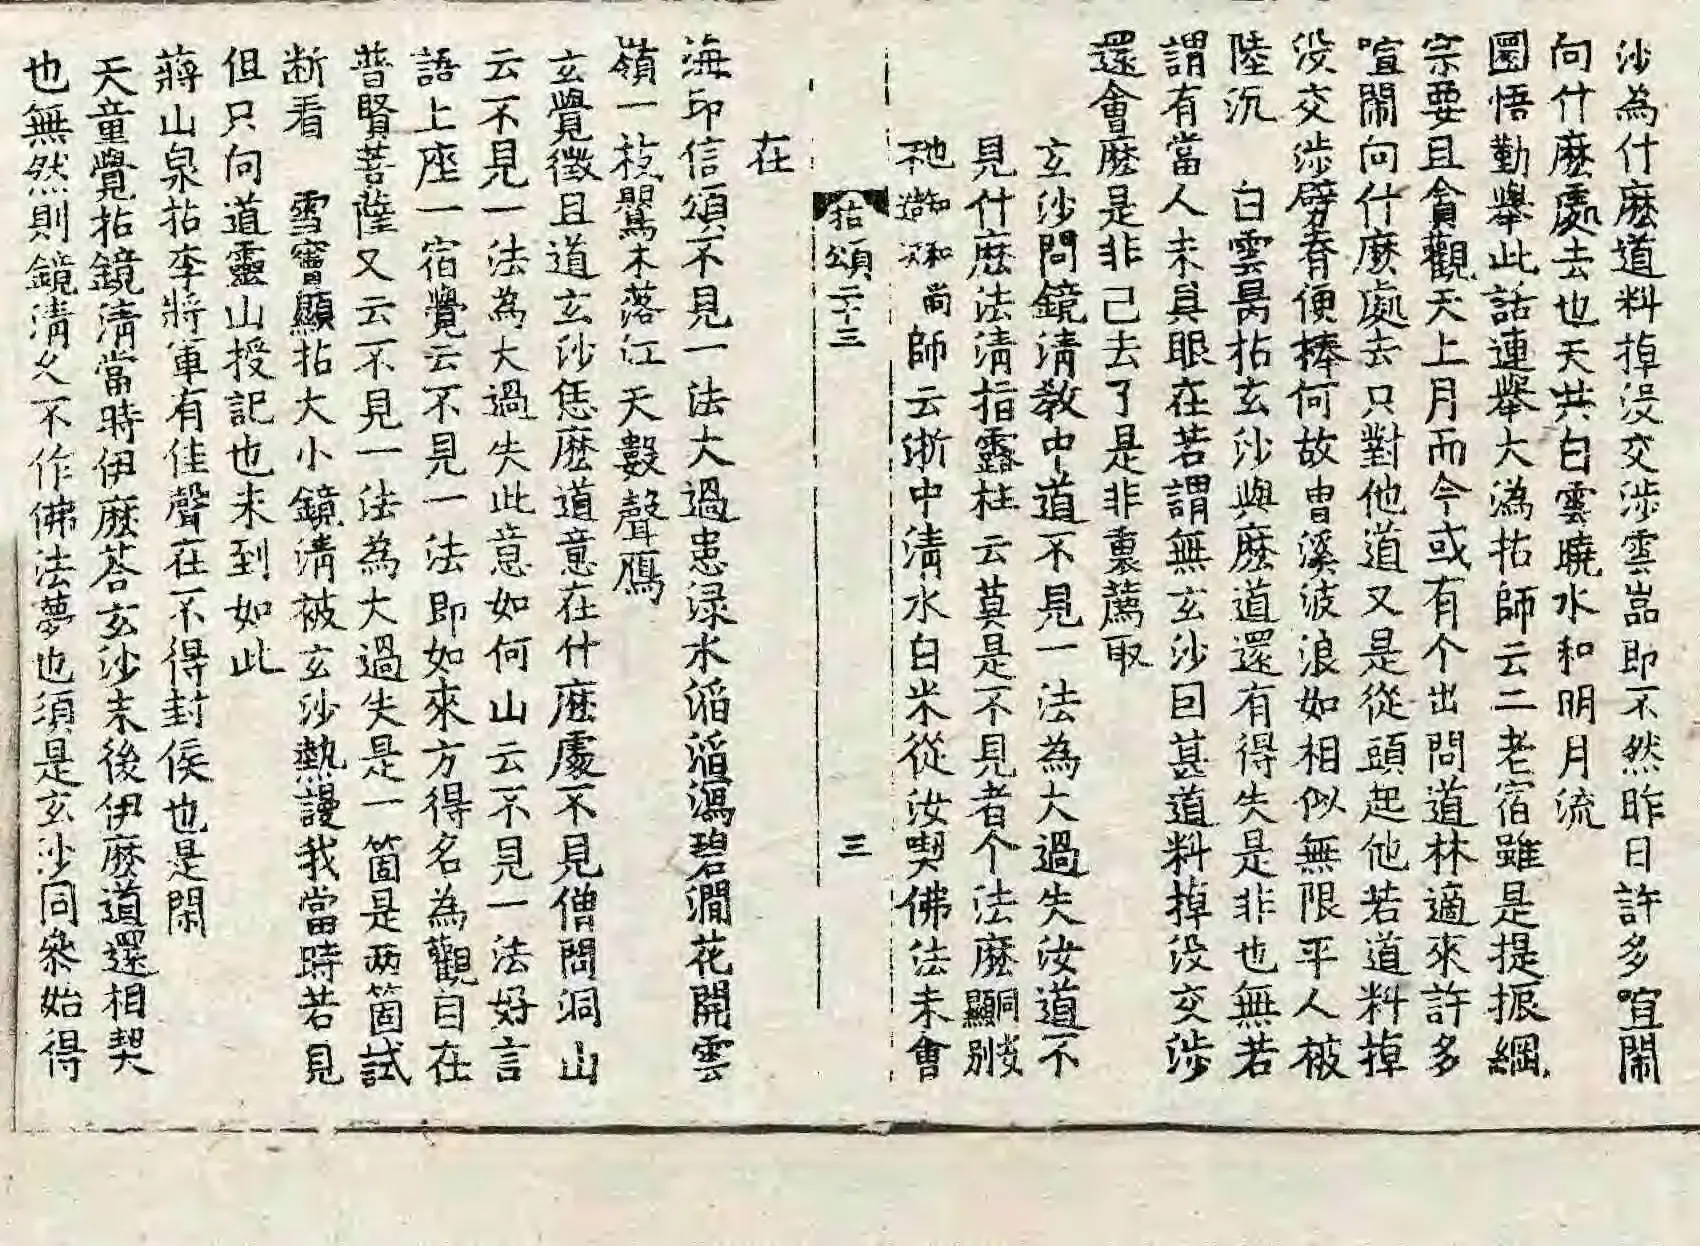 沙為什麽道料掉沒交涉雲嵓即不然昨日許多喧鬧
向什麽處去也天共白雲曉水和明月流
圜悟勤舉此話連舉大溈拈師云二老宿雖是提振綱
宗要且貪觀天上月而今或有个出問道林適來許多
喧鬧向什麽處去只對他道又是從頭起他若道料掉
没交涉劈脊便棒何故曺溪波浪如相似無限平人被
陸沉　白雲昺拈玄沙與麽道還有得失是非也無若
謂有當人未具眼在若謂無玄沙因甚道料掉没交涉
還會麽是非已去了是非裏薦取
玄沙問鏡清教中道不見一法為大過失汝道不
見什麽法清指露柱云莫是不見者个法麽同安顯別
云也知和尚不造次師云浙中清水白米從汝喫佛法未會
拈頌二十三
三
在
海印信頌不見一法大過患渌水滔滔瀉碧澗花開雲
嶺一枝鸎未落江天數聲鴈
玄覺徵且道玄沙恁麽道意在什麽處不見僧問洞山
云不見一法為大過失此意如何山云不見一法好言
語上座一宿覺云不見一法即如來方得名為觀自在
普賢菩薩又云不見一法為大過失是一箇是兩箇試
断看　雪竇顯拈大小鏡清被玄沙熱謾我當時若見
但只向道靈山授記也未到如此
蔣山泉拈李將軍有佳聲在不得封侯也是閑
天童覺拈鏡清當時伊麽荅玄沙末後伊麽道還相契
也無然則鏡清久不作佛法夢也須是玄沙同叅始得